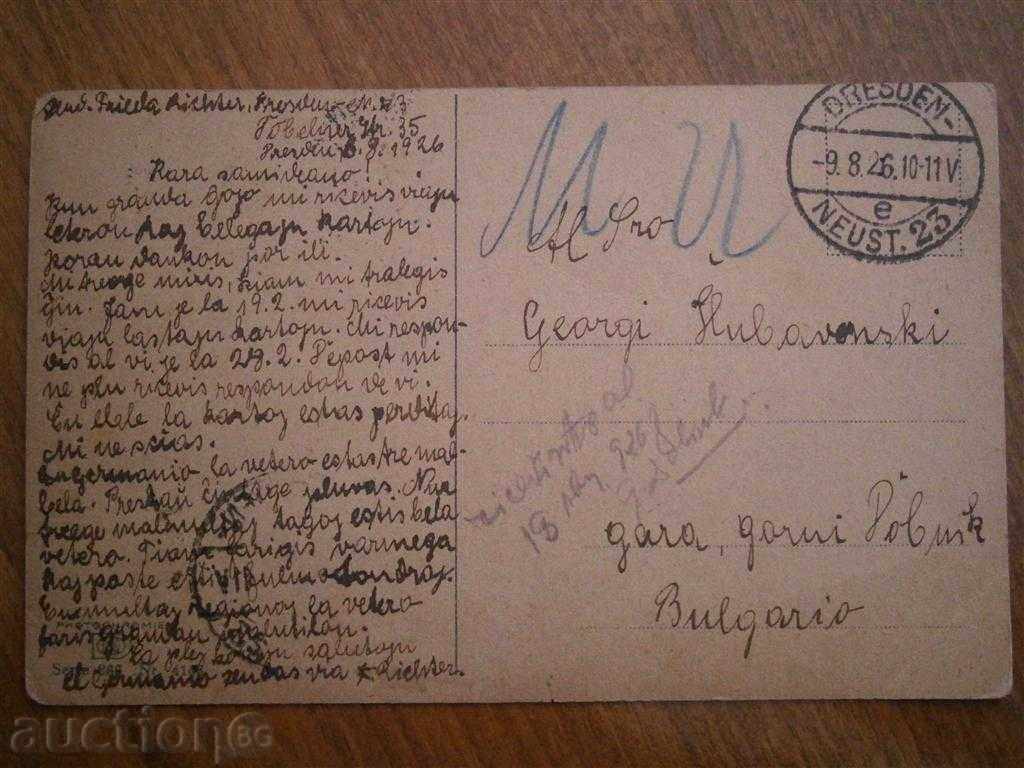 Frieda Richter, Dresden-N. 23
Döbelner Str. 35
Dresden 8.8.1926
Kara samideano!
Kun granda ĝojo mi ricevis viajn
leteron kaj belegajn kartojn.
Koran dankon por ili.
miris, kiam mi tralegis
ĝin. Jam je la 19.2. mi ricevis
viajn lastajn kartojn. Mi respon-
dis al vi je la 28.2. Depost mi
ne plu ricevis respondon de vi.
En la kartoj estas perditaj.
Mi ne scias.
En Germanio la vetero estas tre mal-
bela. Preskaŭ ĉiutage pluvas. Nur
treege malmultaj tagoj estis bela
vetero. Tiam fariĝis varmega
kaj poste estis fulmotondroj.
En multaj regionoj la vetero
faris grandan
La plej korajn salutojn
el Germanio sendas via F. Richter.
DRESDEN-
-9.8.26.10-11V
e
NEUST. 23
Al S-ro
Georgi Hubavenski
18
926
gara, gorni Dŭbnik
Bulgario
auctionBG